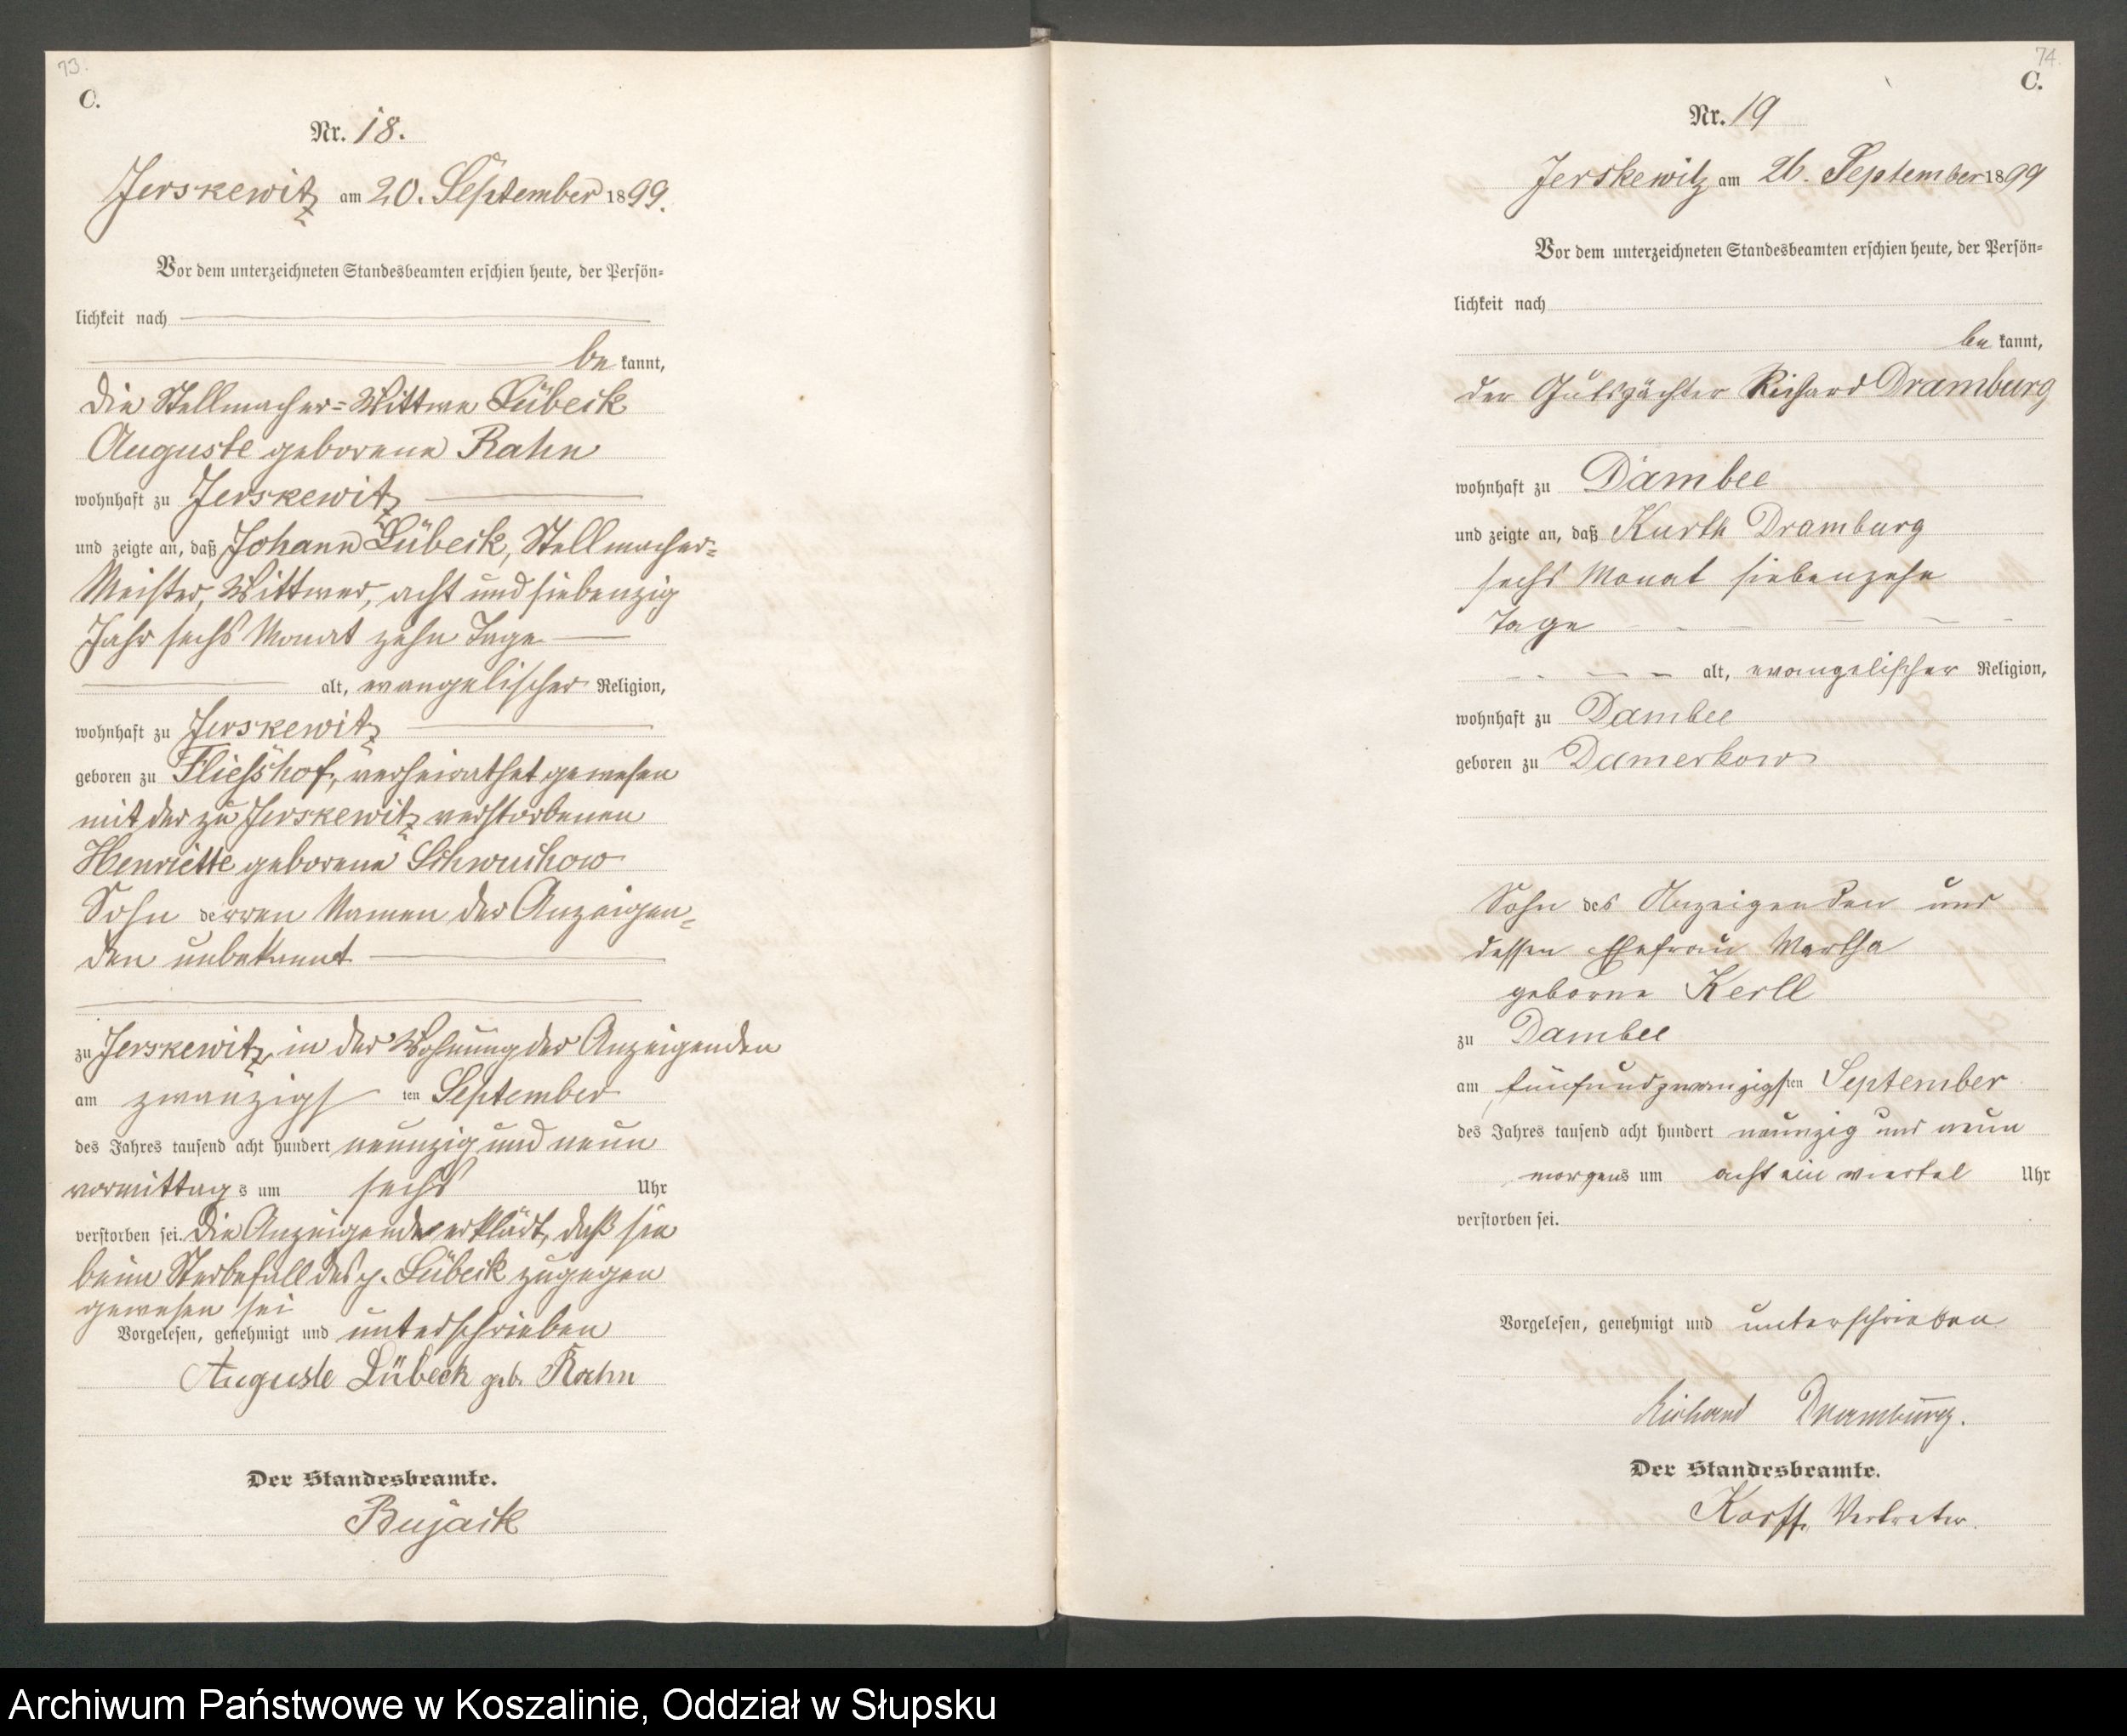 73.
C.
Nr. 18.
Jerskewitz am 20. September 1899.
Vor dem unterzeichneten Standesbeamten erschien heute, der Persön=
lichkeit nach
be kannt,
die Stellmacher=Wittwe Lübeck
Auguste geborene Rahn
wohnhaft zu Jerskewitz
und zeigte an, daß Johann Lübeck, Stellmacher=
Meister, Wittwer, acht und siebenzig
Jahr sechs Monat zehn Tage
alt, evangelischer Religion,
wohnhaft zu Jerskewitz
geboren zu Fliesshof, verheirathet gewesen
mit der zu Jerskewitz verstorbenen
Henriette geborene Schwuchow
Sohn derren Namen der Anzeigen=
den unbekannt
zu Jerskewitz, in der Wohnung der Anzeigenden
am zwanzigs ten September
des Jahres tausend acht hundert neunzig und neun
vormittags um sechs Uhr
verstorben sei. Die Anzeigende erklärt, daß sie
beim Sterbefall des p. Lübeck zugegen
gewesen sei
Vorgelesen, genehmigt und unterschrieben
Auguste Lübeck geb. Rahn
Der Standesbeamte.
Bujack
74.
C.
Nr. 19
Jerskewitz am 26. September 1899
Vor dem unterzeichneten Standesbeamten erschien heute, der Persön=
lichkeit nach
be kannt,
der Gutspächter Richard Dramburg
wohnhaft zu Dambee
und zeigte an, daß Kurth Dramburg
sechs Monat siebenzehn
Tage
alt, evangelischer Religion,
wohnhaft zu Dambee
geboren zu Damerkow
Sohn des Anzeigenden und
dessen Ehefrau Martha
geborne Kerll
zu Dambee
am fünfundzwanzigsten September
des Jahres tausend acht hundert neunzig und neun
morgens um acht ein viertel Uhr
verstorben sei.
Vorgelesen, genehmigt und unterschrieben
Richard Dramburg.
Der Standesbeamte.
Korff, Vertreter.
Archiwum Państwowe w Koszalinie, Oddział w Słupsku